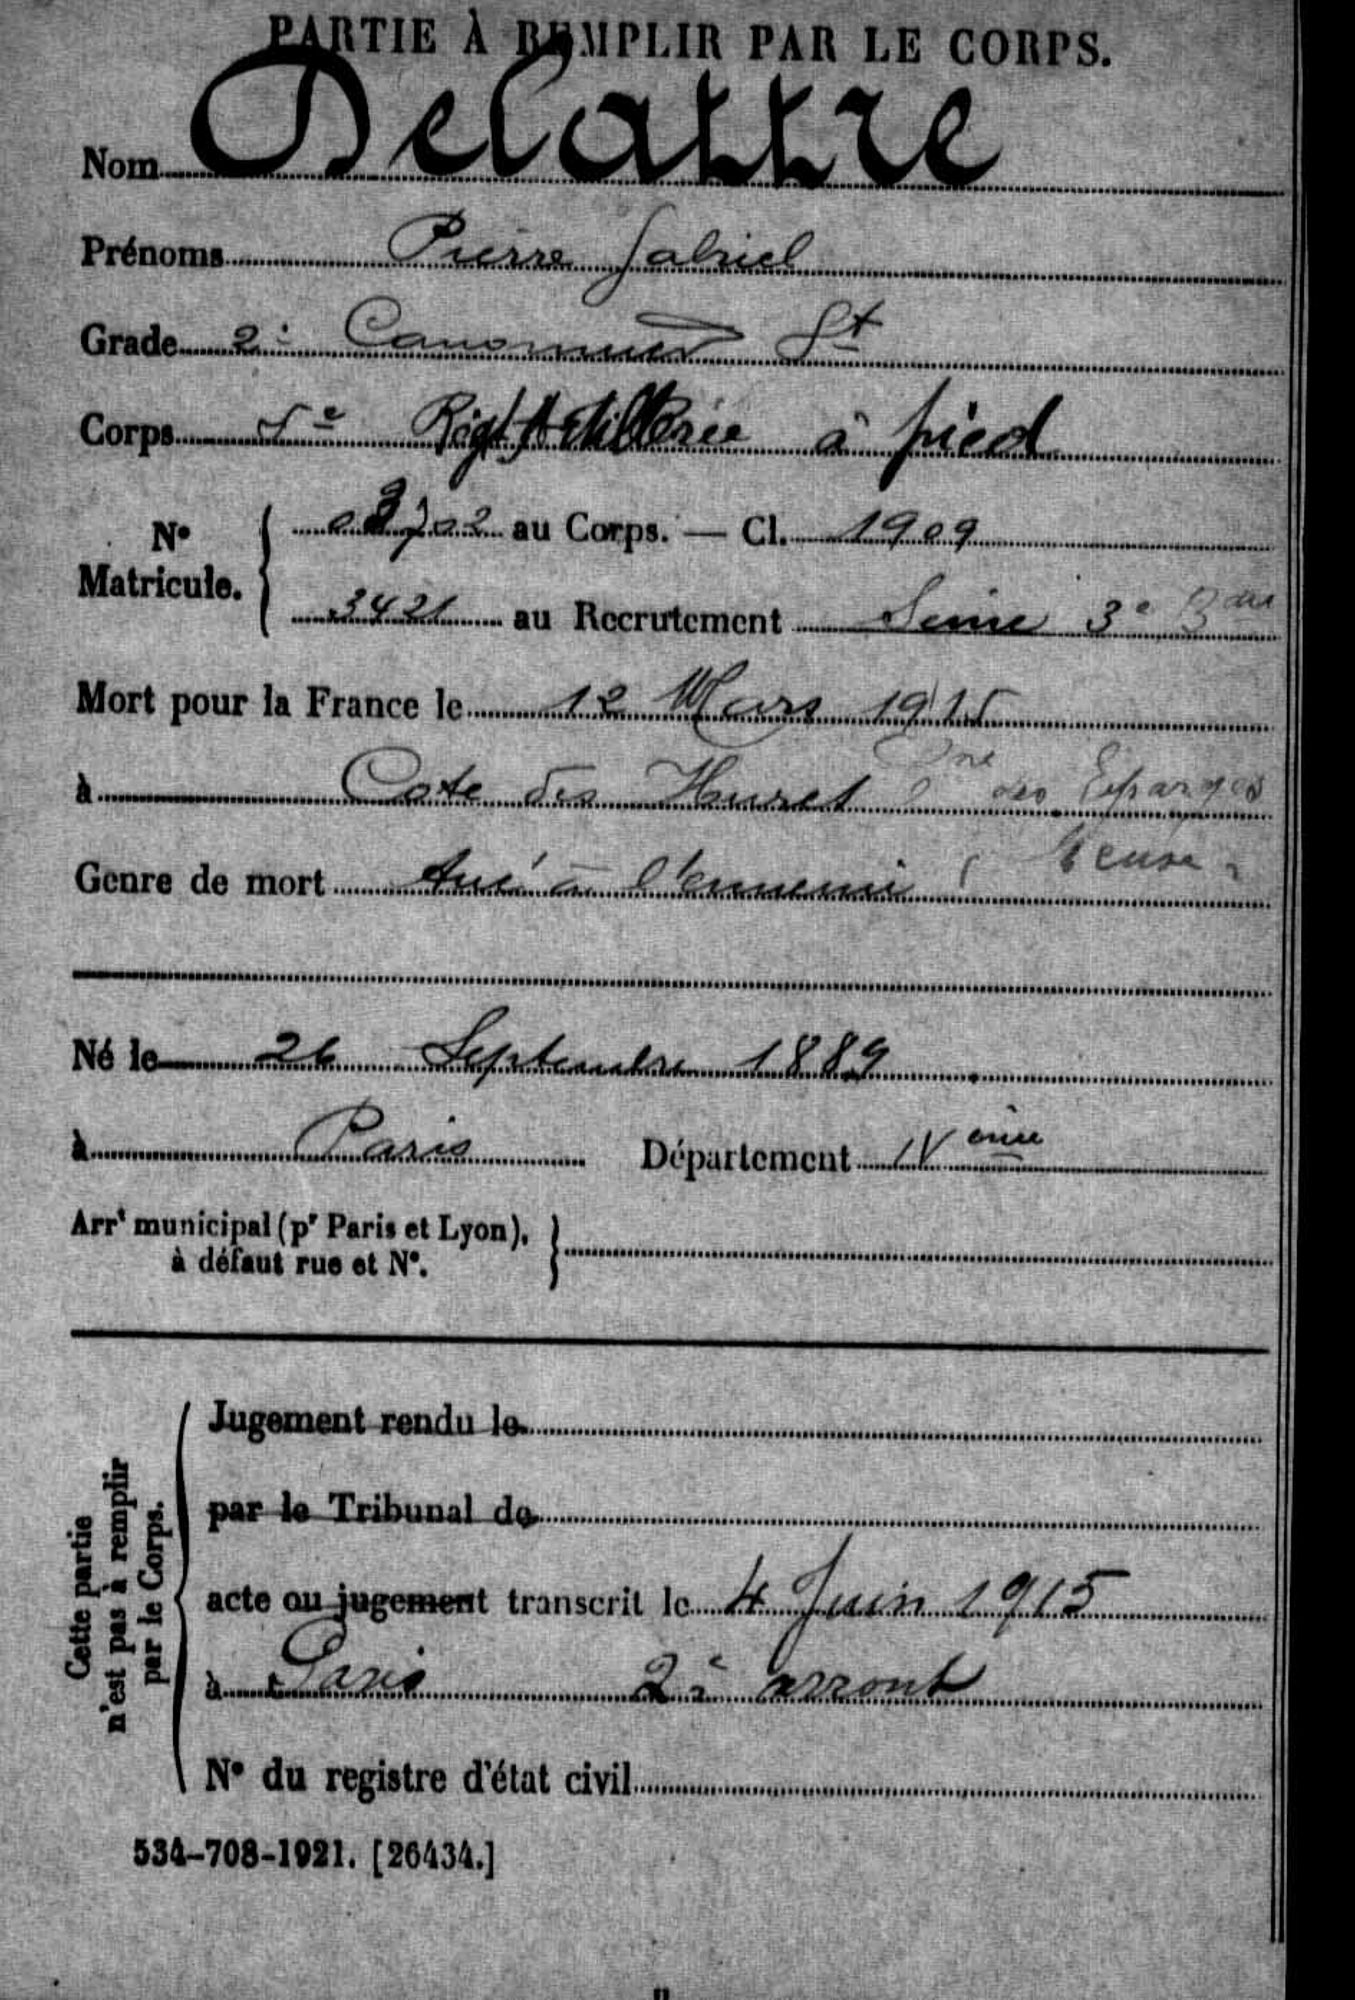 PARTIE À REMPLIR PAR LE CORPS.
Nom Delattre
Prénoms Pierre Gabriel
Grade 2e Canonnier St
Corps 5e Rég! Artillerie à pied
N° Matricule. 03702 au Corps. — Cl. 1909
3421 au Recrutement Seine 3e Bau
Mort pour la France le 12 Mars 1915
à Cote des Hures des Eparges
Genre de mort tué à l'ennemi Meuse
Né le 26 Septembre 1889
à Paris Département IVème
Arrt municipal (pr Paris et Lyon), à défaut rue et N°.
Cette partie n'est pas à remplir par le Corps.
Jugement rendu le
par le Tribunal de
acte ou jugement transcrit le 4 Juin 1915
à Paris 2e arront
N° du registre d'état civil
534-708-1921. [26434.]